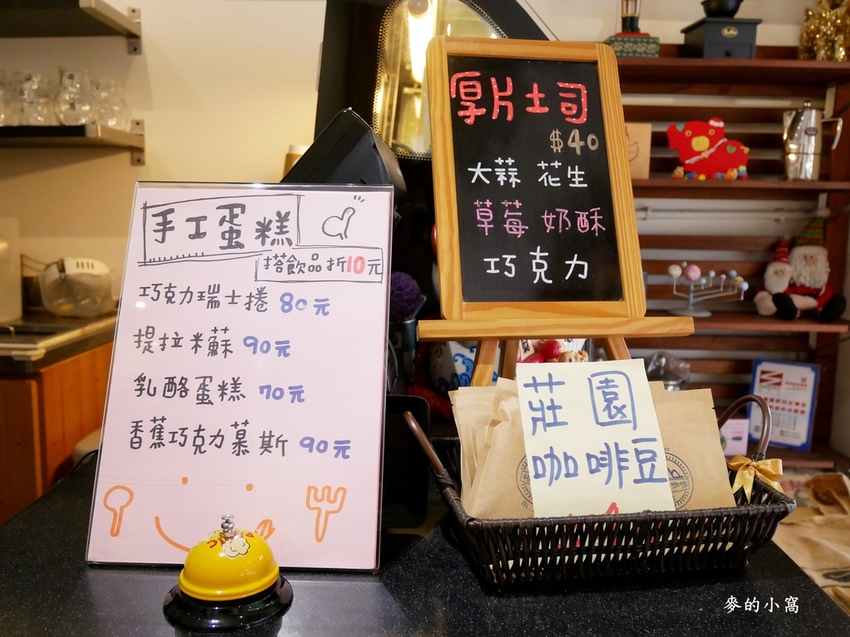 手工蛋糕
搭飲品折10元
巧克力瑞士捲 80元
提拉米蘇 90元
乳酪蛋糕 70元
香蕉巧克力慕斯 90元
厚片土司
$40
大蒜 花生
草莓 奶酥
巧克力
莊園
咖啡豆
麥的小窩